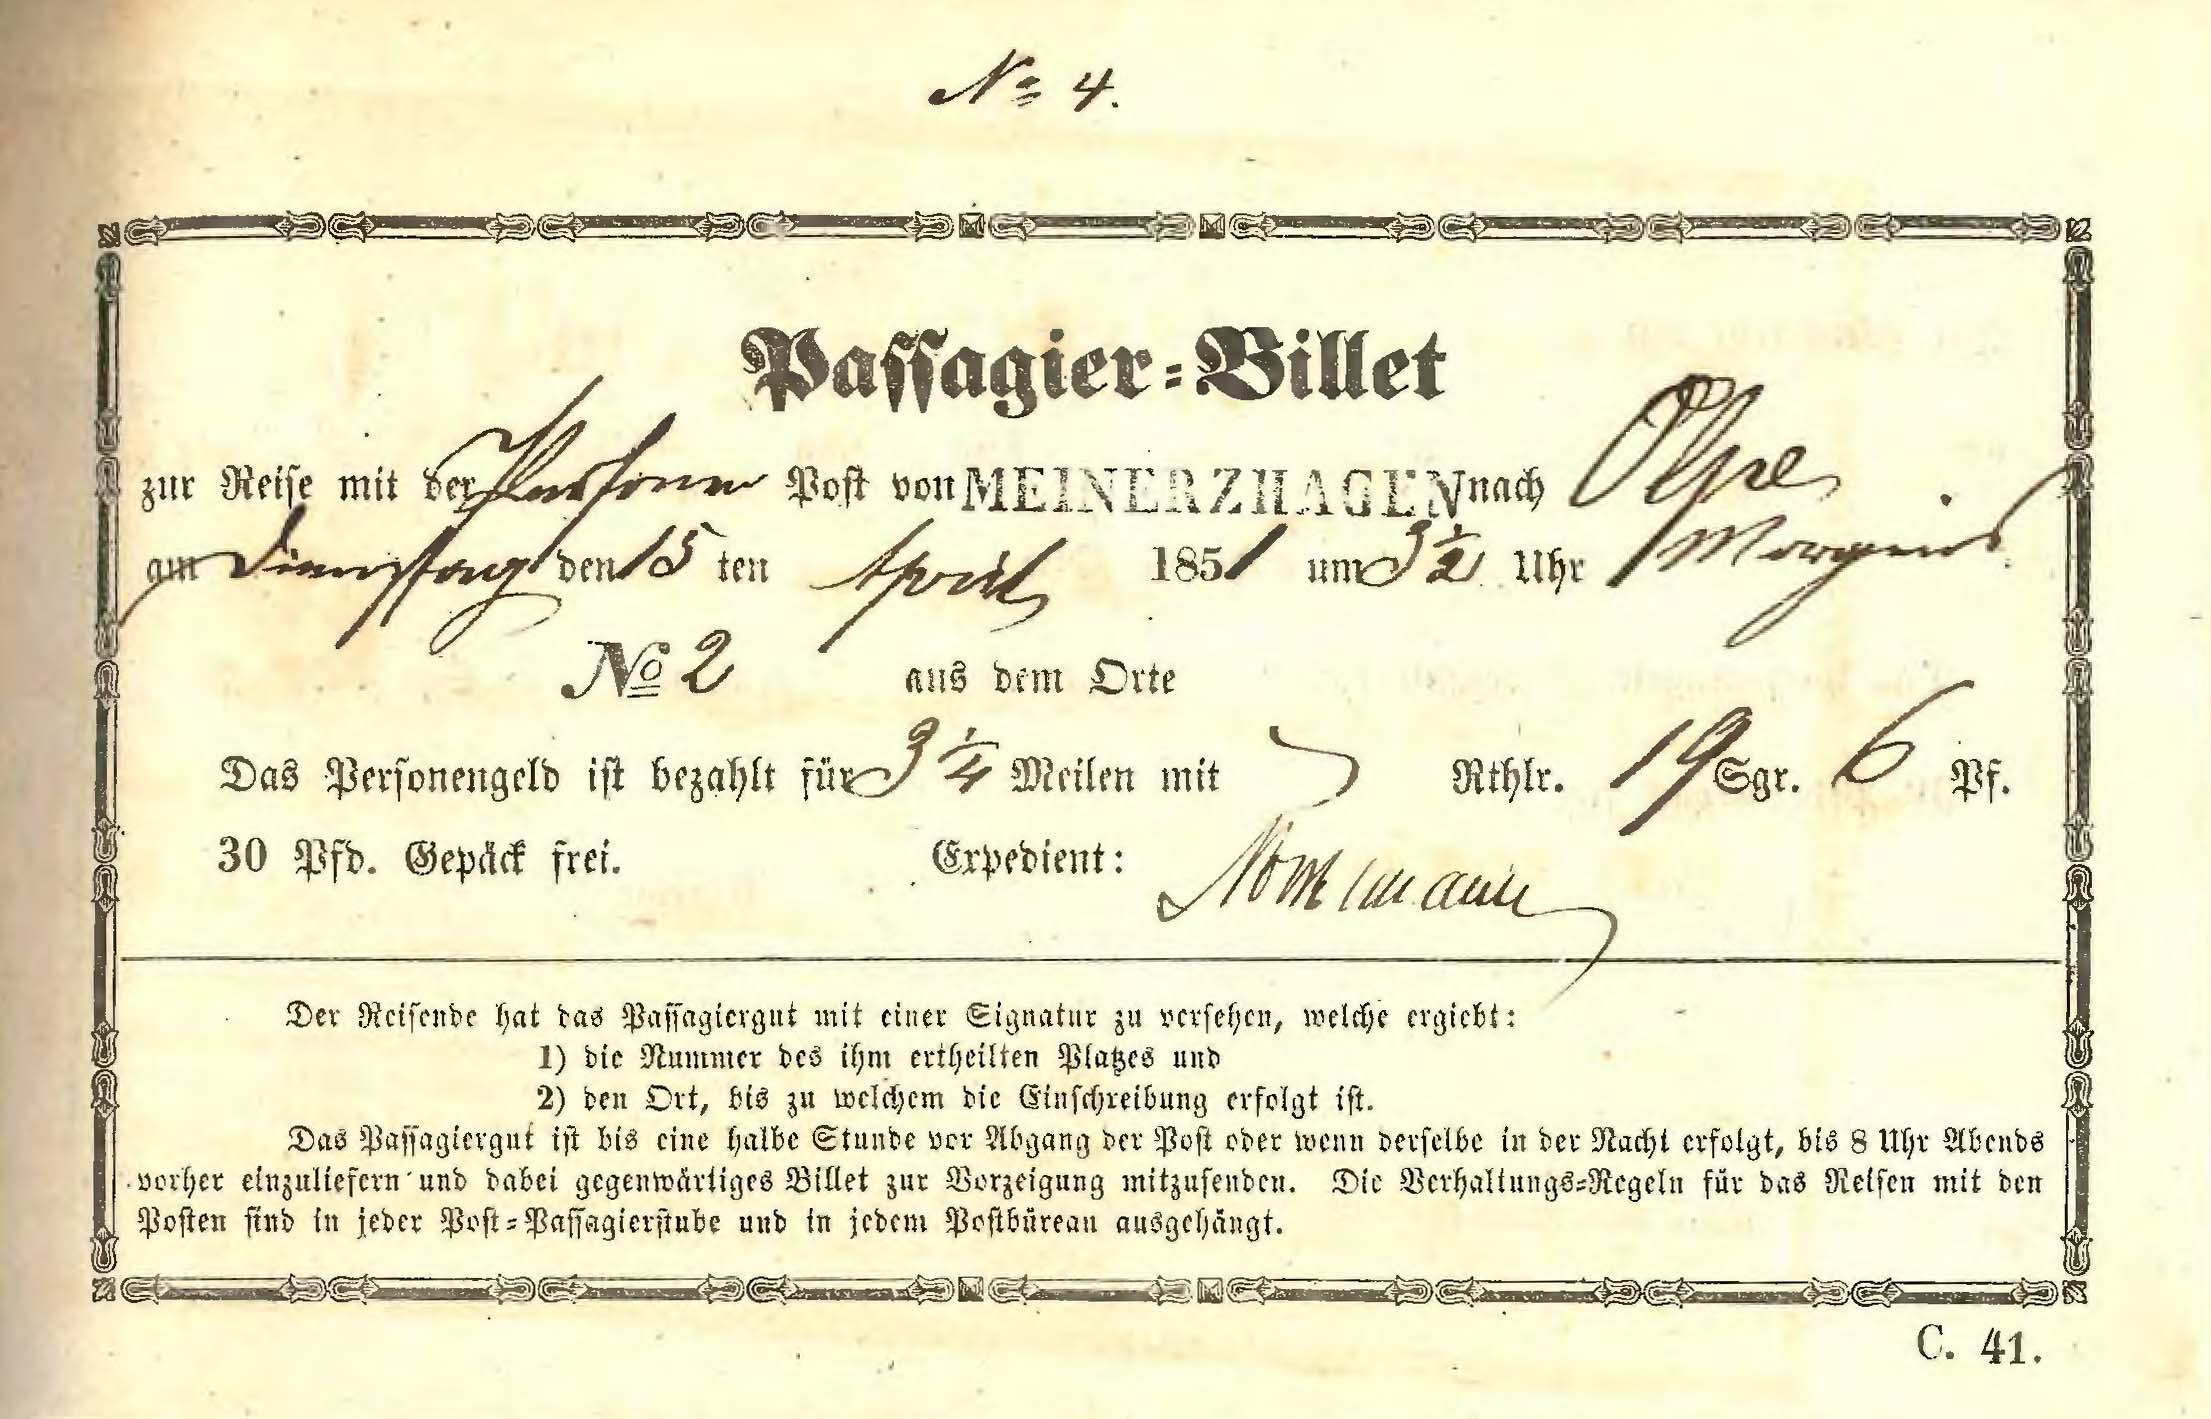 No 4.
Passagier-Billet
zur Reise mit der Personen Post von MEINERZHAGEN nach Olpe
am Dienstag den 15 ten April 1851 um 3 1/2 Uhr Morgens
No 2 aus dem Orte
Das Personengeld ist bezahlt für 3 1/4 Meilen mit Rthlr. 19 Sgr. 6 Pf.
30 Pfd. Gepäck frei. Expedient:
Der Reisende hat das Passagiergut mit einer Signatur zu versehen, welche ergiebt:
1) die Nummer des ihm ertheilten Platzes und
2) den Ort, bis zu welchem die Einschreibung erfolgt ist.
Das Passagiergut ist bis eine halbe Stunde vor Abgang der Post oder wenn derselbe in der Nacht erfolgt, bis 8 Uhr Abends
vorher einzuliefern und dabei gegenwärtiges Billet zur Vorzeigung mitzusenden. Die Verhaltungs-Regeln für das Reisen mit den
Posten sind in jeder Post-Passagierstube und in jedem Postbüreau ausgehängt.
C. 41.